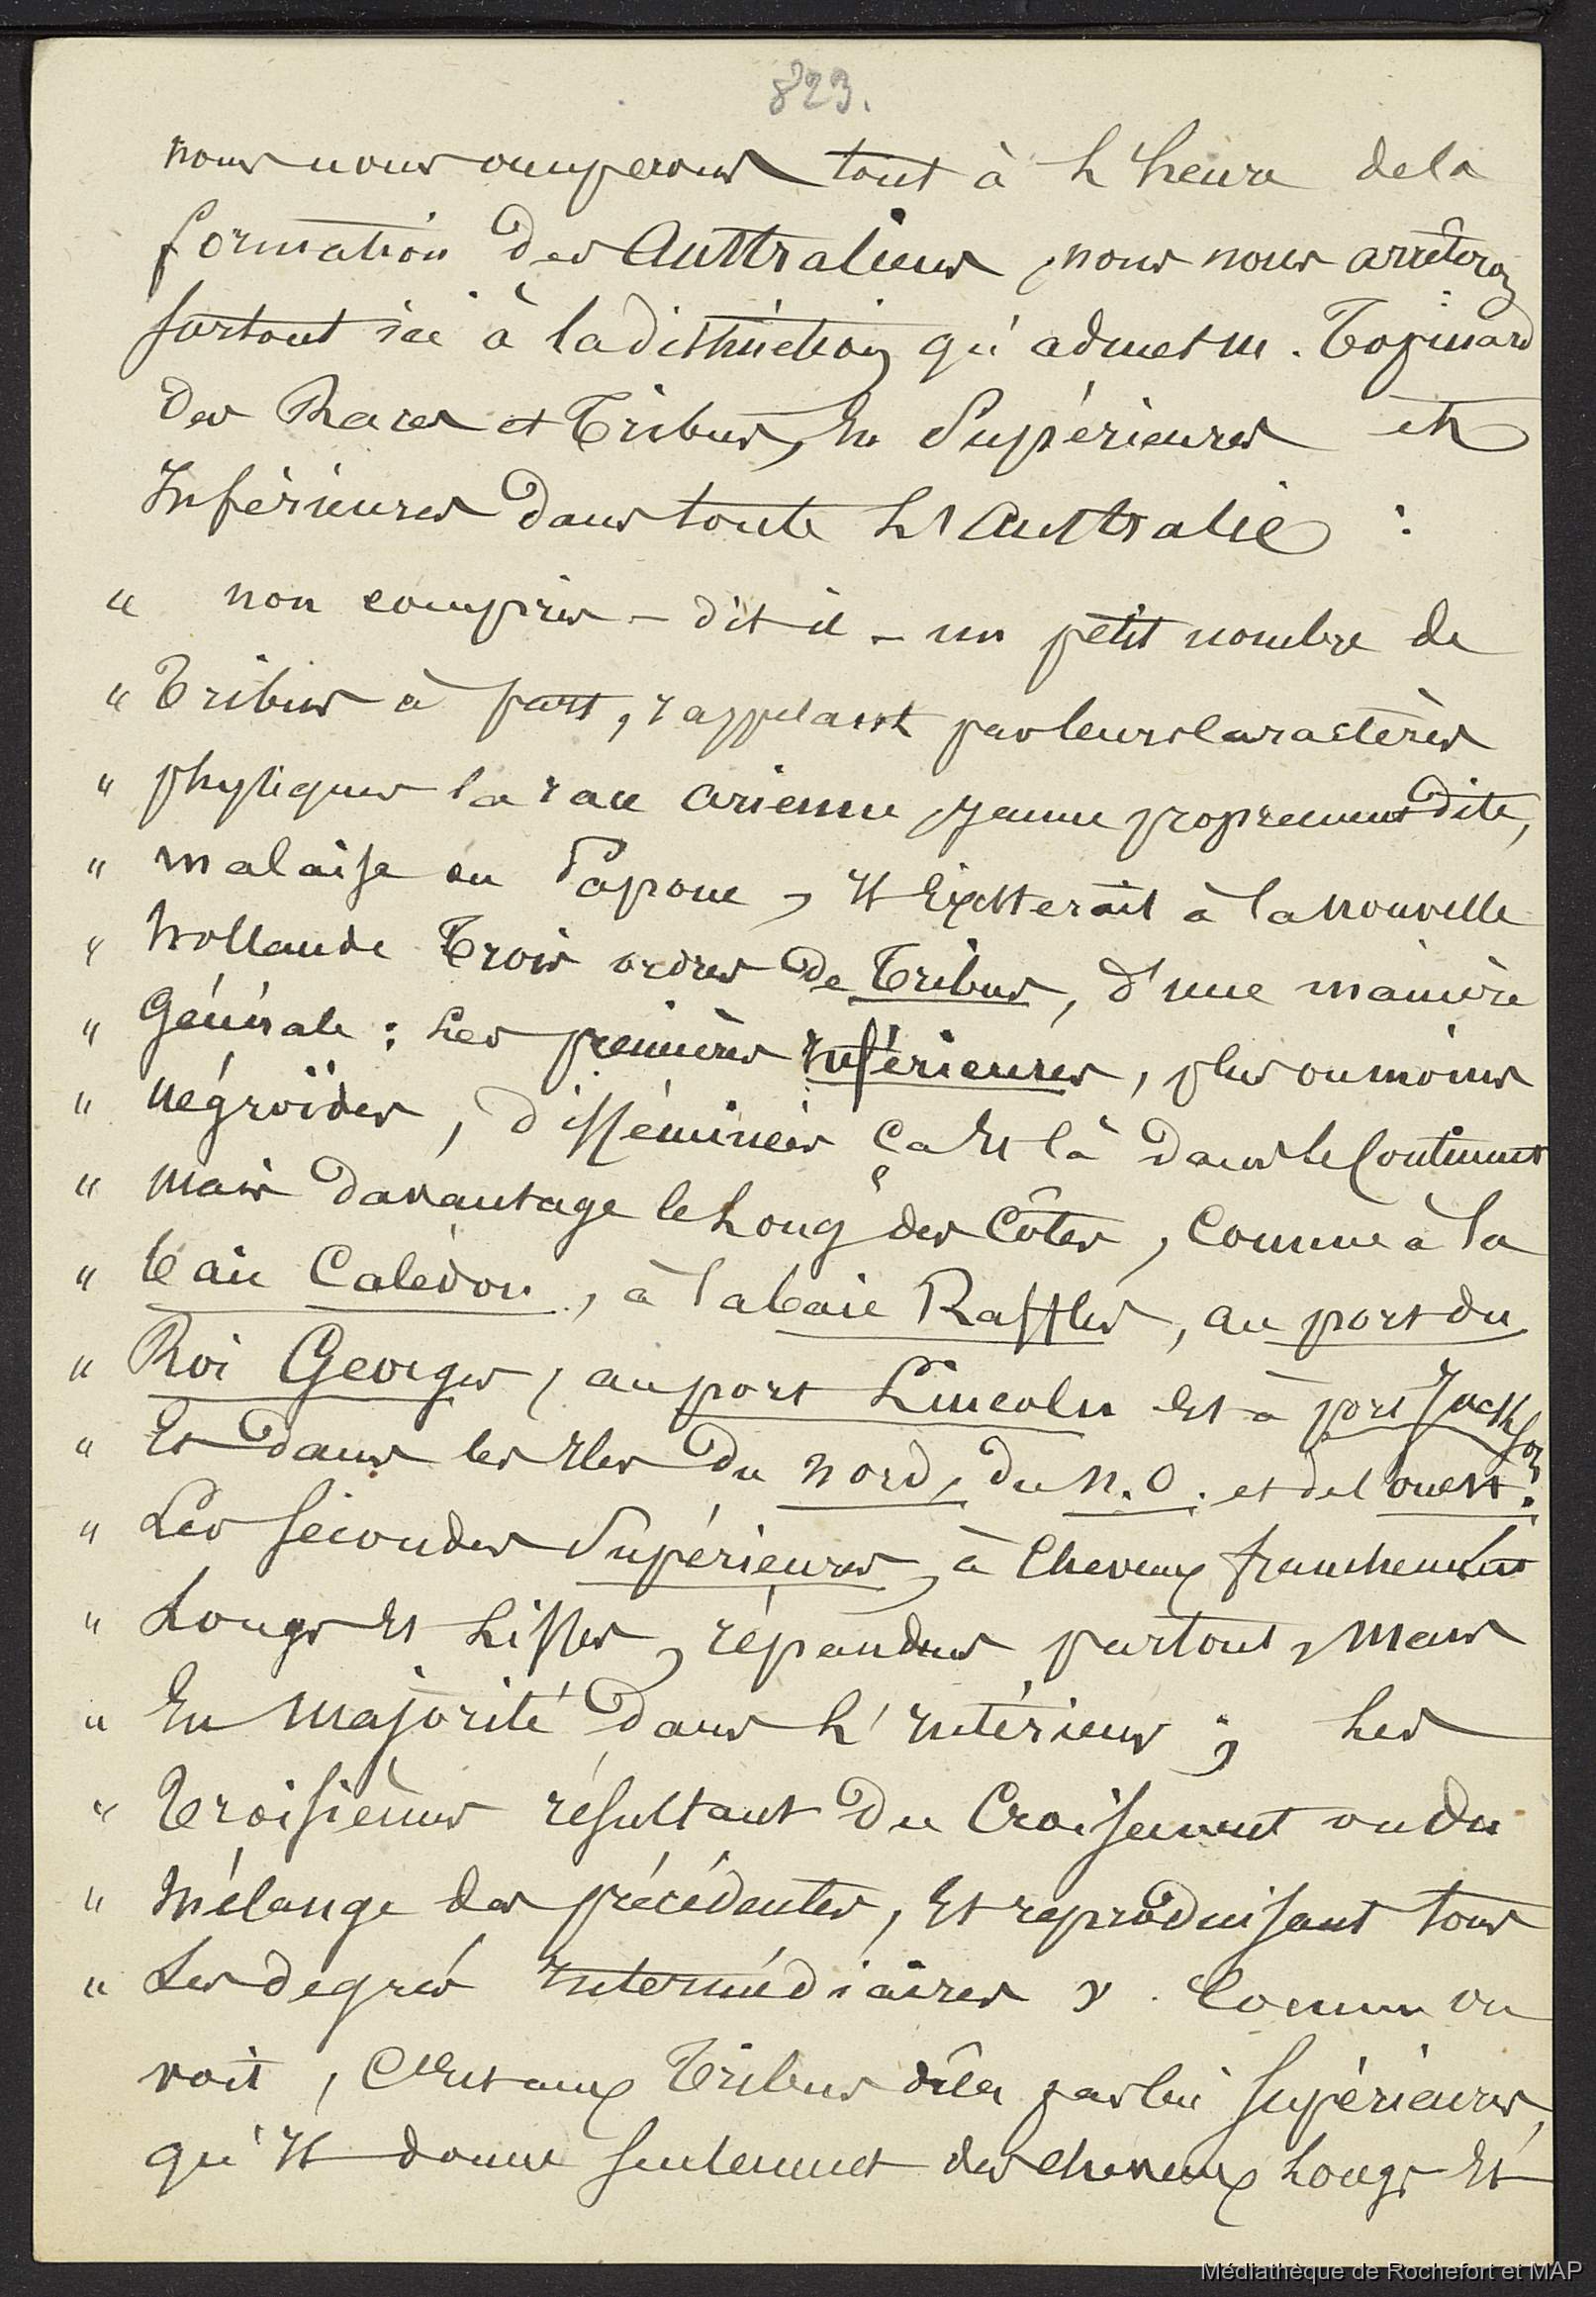 823.
nous nous occuperons tout à L'heure dela
formation des Australiens, nous nous arrêterons
surtout ici à la distinction qu'admet M. Topinard
des Races et Tribus, En Supérieures et
Inférieures dans toute L'Australie :
" non compris – dit-il – un petit nombre de
" Tribus à part, rappelant par leurs Caractères
" physiques la race arienne, Jaune proprement dite,
" malaise ou Papoue, Il Existerait à la Nouvelle
" Hollande Trois ordres de Tribus, d'une manière
" Générale : Les premières Inférieures, plus ou moins
" Négroïdes, disséminées Ça Et là dans le Continent
" Mais davantage le Long des Côtes, Comme à la
" baie Calédon, à la baie Raffles, au port du
" Roi Georges, au port Lincoln Et à port Jackson
" Et dans les Iles du nord, du N.O. et de l'ouest.
" Les secondes Supérieures, à Cheveux franchement
" Longs Et Lisses, répandues partout, Mais
" En Majorité dans L'Intérieur ; Les
" Troisièmes résultant du Croisement ou du
" Mélange des précédentes, Et reproduisant tous
" Les degrés Intermédiaires ». Comme on
voit, C'Est aux Tribus dites par lui Supérieures,
qu'Il donne seulement des cheveux Longs Et
Médiathèque de Rochefort et MAP